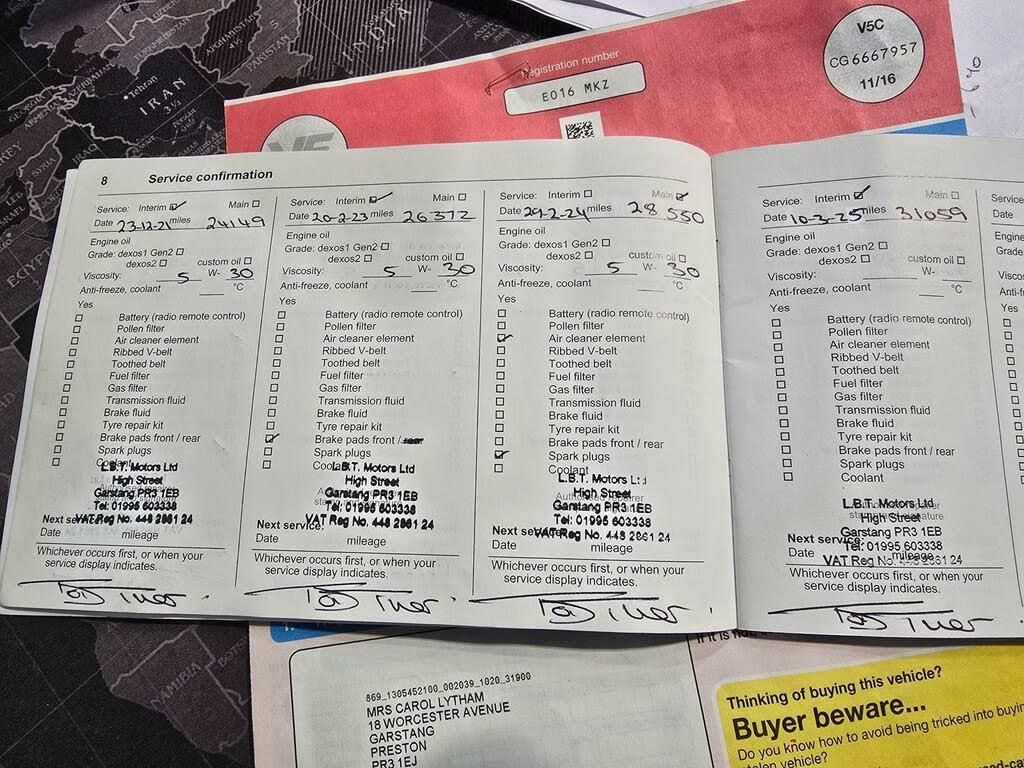 IRAN
INDIA
Tehran
Registration number
EO16 MKZ
V5C
CG6667957
11/16
8 Service confirmation
Service: Interim ☑ Main ☐
Date 23-12-21 miles 24149
Engine oil
Grade: dexos1 Gen2 ☐
dexos2 ☐ custom oil ☐
Viscosity: 5 W- 30
Anti-freeze, coolant °C
Yes
☐ Battery (radio remote control)
☐ Pollen filter
☐ Air cleaner element
☐ Ribbed V-belt
☐ Toothed belt
☐ Fuel filter
☐ Gas filter
☐ Transmission fluid
☐ Brake fluid
☐ Tyre repair kit
☐ Brake pads front / rear
☐ Spark plugs
☐ Coolant
L.B.T. Motors Ltd
High Street
Garstang PR3 1EB
Tel: 01995 603338
VAT Reg No. 448 2861 24
Next service
Date mileage
Whichever occurs first, or when your
service display indicates.
Service: Interim ☑ Main ☐
Date 20-2-23 miles 26372
Engine oil
Grade: dexos1 Gen2 ☐
dexos2 ☐ custom oil ☐
Viscosity: 5 W- 30
Anti-freeze, coolant °C
Yes
☐ Battery (radio remote control)
☐ Pollen filter
☐ Air cleaner element
☐ Ribbed V-belt
☐ Toothed belt
☐ Fuel filter
☐ Gas filter
☐ Transmission fluid
☐ Brake fluid
☐ Tyre repair kit
☑ Brake pads front / rear
☐ Spark plugs
☐ Coolant
L.B.T. Motors Ltd
High Street
Garstang PR3 1EB
Tel: 01995 603338
VAT Reg No. 448 2861 24
Next service
Date mileage
Whichever occurs first, or when your
service display indicates.
Service: Interim ☐ Main ☑
Date 29-2-24 miles 28 550
Engine oil
Grade: dexos1 Gen2 ☐
dexos2 ☐ custom oil ☐
Viscosity: 5 W- 30
Anti-freeze, coolant °C
Yes
☐ Battery (radio remote control)
☐ Pollen filter
☑ Air cleaner element
☐ Ribbed V-belt
☐ Toothed belt
☐ Fuel filter
☐ Gas filter
☐ Transmission fluid
☐ Brake fluid
☐ Tyre repair kit
☐ Brake pads front / rear
☑ Spark plugs
☐ Coolant
L.B.T. Motors Ltd
High Street
Garstang PR3 1EB
Tel: 01995 603338
VAT Reg No. 448 2861 24
Next service
Date mileage
Whichever occurs first, or when your
service display indicates.
Service: Interim ☑ Main ☐
Date 10-3-25 miles 31059
Engine oil
Grade: dexos1 Gen2 ☐
dexos2 ☐ custom oil ☐
Viscosity: W-
Anti-freeze, coolant °C
Yes
☐ Battery (radio remote control)
☐ Pollen filter
☐ Air cleaner element
☐ Ribbed V-belt
☐ Toothed belt
☐ Fuel filter
☐ Gas filter
☐ Transmission fluid
☐ Brake fluid
☐ Tyre repair kit
☐ Brake pads front / rear
☐ Spark plugs
☐ Coolant
L.B.T. Motors Ltd
High Street
Garstang PR3 1EB
Tel: 01995 603338
VAT Reg No. 448 2861 24
Next service
Date mileage
Whichever occurs first, or when your
service display indicates.
869_1305452100_002039_1020_31900
MRS CAROL LYTHAM
18 WORCESTER AVENUE
GARSTANG
PRESTON
PR3 1EJ
Thinking of buying this vehicle?
Buyer beware...
Do you know how to avoid being tricked into buying
stolen vehicle?